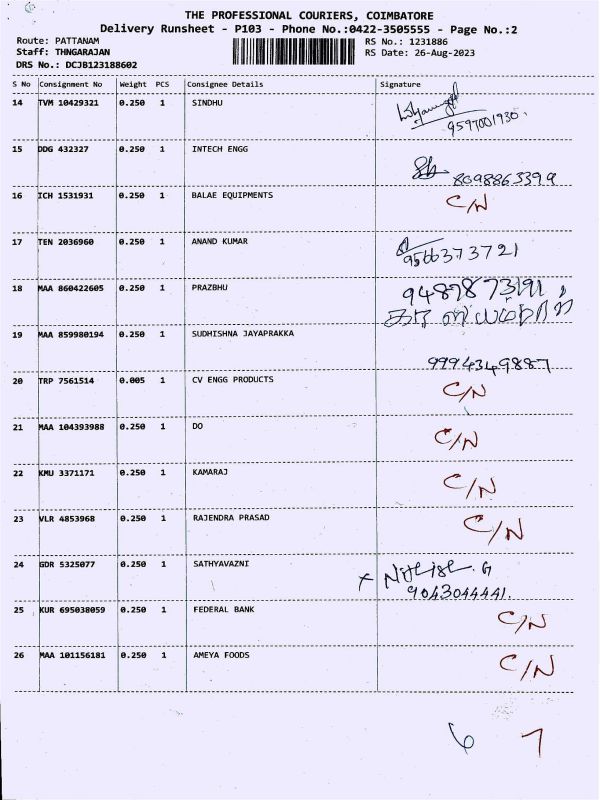 THE PROFESSIONAL COURIERS, COIMBATORE
Delivery Runsheet - P103 - Phone No.:0422-3505555 - Page No.:2
Route: PATTANAM RS No.: 1231886
Staff: THNGARAJAN RS Date: 26-Aug-2023
DRS No.: DCJB123188602
S No Consignment No Weight PCS Consignee Details Signature
14 TVM 10429321 0.250 1 SINDHU
9597001930.
15 DDG 432327 0.250 1 INTECH ENGG
8098863399
16 ICH 1531931 0.250 1 BALAE EQUIPMENTS C/N
17 TEN 2036960 0.250 1 ANAND KUMAR
9566373721
18 MAA 860422605 0.250 1 PRAZBHU
19 MAA 859980194 0.250 1 SUDHISHNA JAYAPRAKKA
9994349887
20 TRP 7561514 0.005 1 CV ENGG PRODUCTS C/N
21 MAA 104393988 0.250 1 DO C/N
22 KMU 3371171 0.250 1 KAMARAJ C/N
23 VLR 4853968 0.250 1 RAJENDRA PRASAD C/N
24 GDR 5325077 0.250 1 SATHYAVAZNI Nithish. G
9043044441.
25 KUR 695038059 0.250 1 FEDERAL BANK C/N
26 MAA 101156181 0.250 1 AMEYA FOODS C/N
6 7